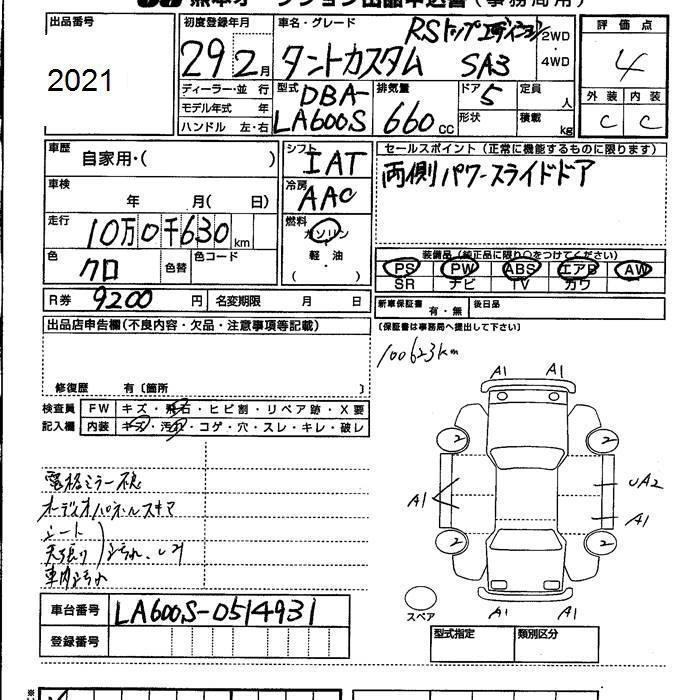 出品申込書(事務局用)
出品番号
2021
初度登録年月
29年2月
車名・グレード
RSトップエディション
タントカスタム SAⅢ
2WD・4WD
評価点
4
外装 内装
C C
ディーラー・並行
モデル年式 年
ハンドル 左・右
型式
DBA-
LA600S
排気量
660cc
ドア
5
形状
定員 人
積載 kg
車歴
自家用・( )
シフト
IAT
セールスポイント(正常に機能するものに限ります)
両側パワースライドドア
車検
年 月( 日)
冷房
AAC
走行
10万0千630km
燃料
ガソリン
・
軽油
( ・ )
色
クロ
色替
色コード
装備品(純正品に限り○をつけてください)
PS PW ABS エアB AW
SR ナビ TV カワ
R券 9200円
名変期限 月 日
新車保証書 有・無
後日品
出品店申告欄(不良内容・欠品・注意事項等記載)
(保証書は事務局へ提出して下さい)
100623km
修復歴 有〔箇所 〕
検査員
記入欄
FW キズ・飛石・ヒビ割・リペア跡・X要
内装 キズ・汚れ・コゲ・穴・スレ・キレ・破レ
電格ミラー不良
オーディオパネルスキマ
シート
天張り
A1 A1
2 2
A1
UA2
A1
2 2
A1 A1
スペア
車台番号 LA600S-0514931
登録番号
型式指定 類別区分